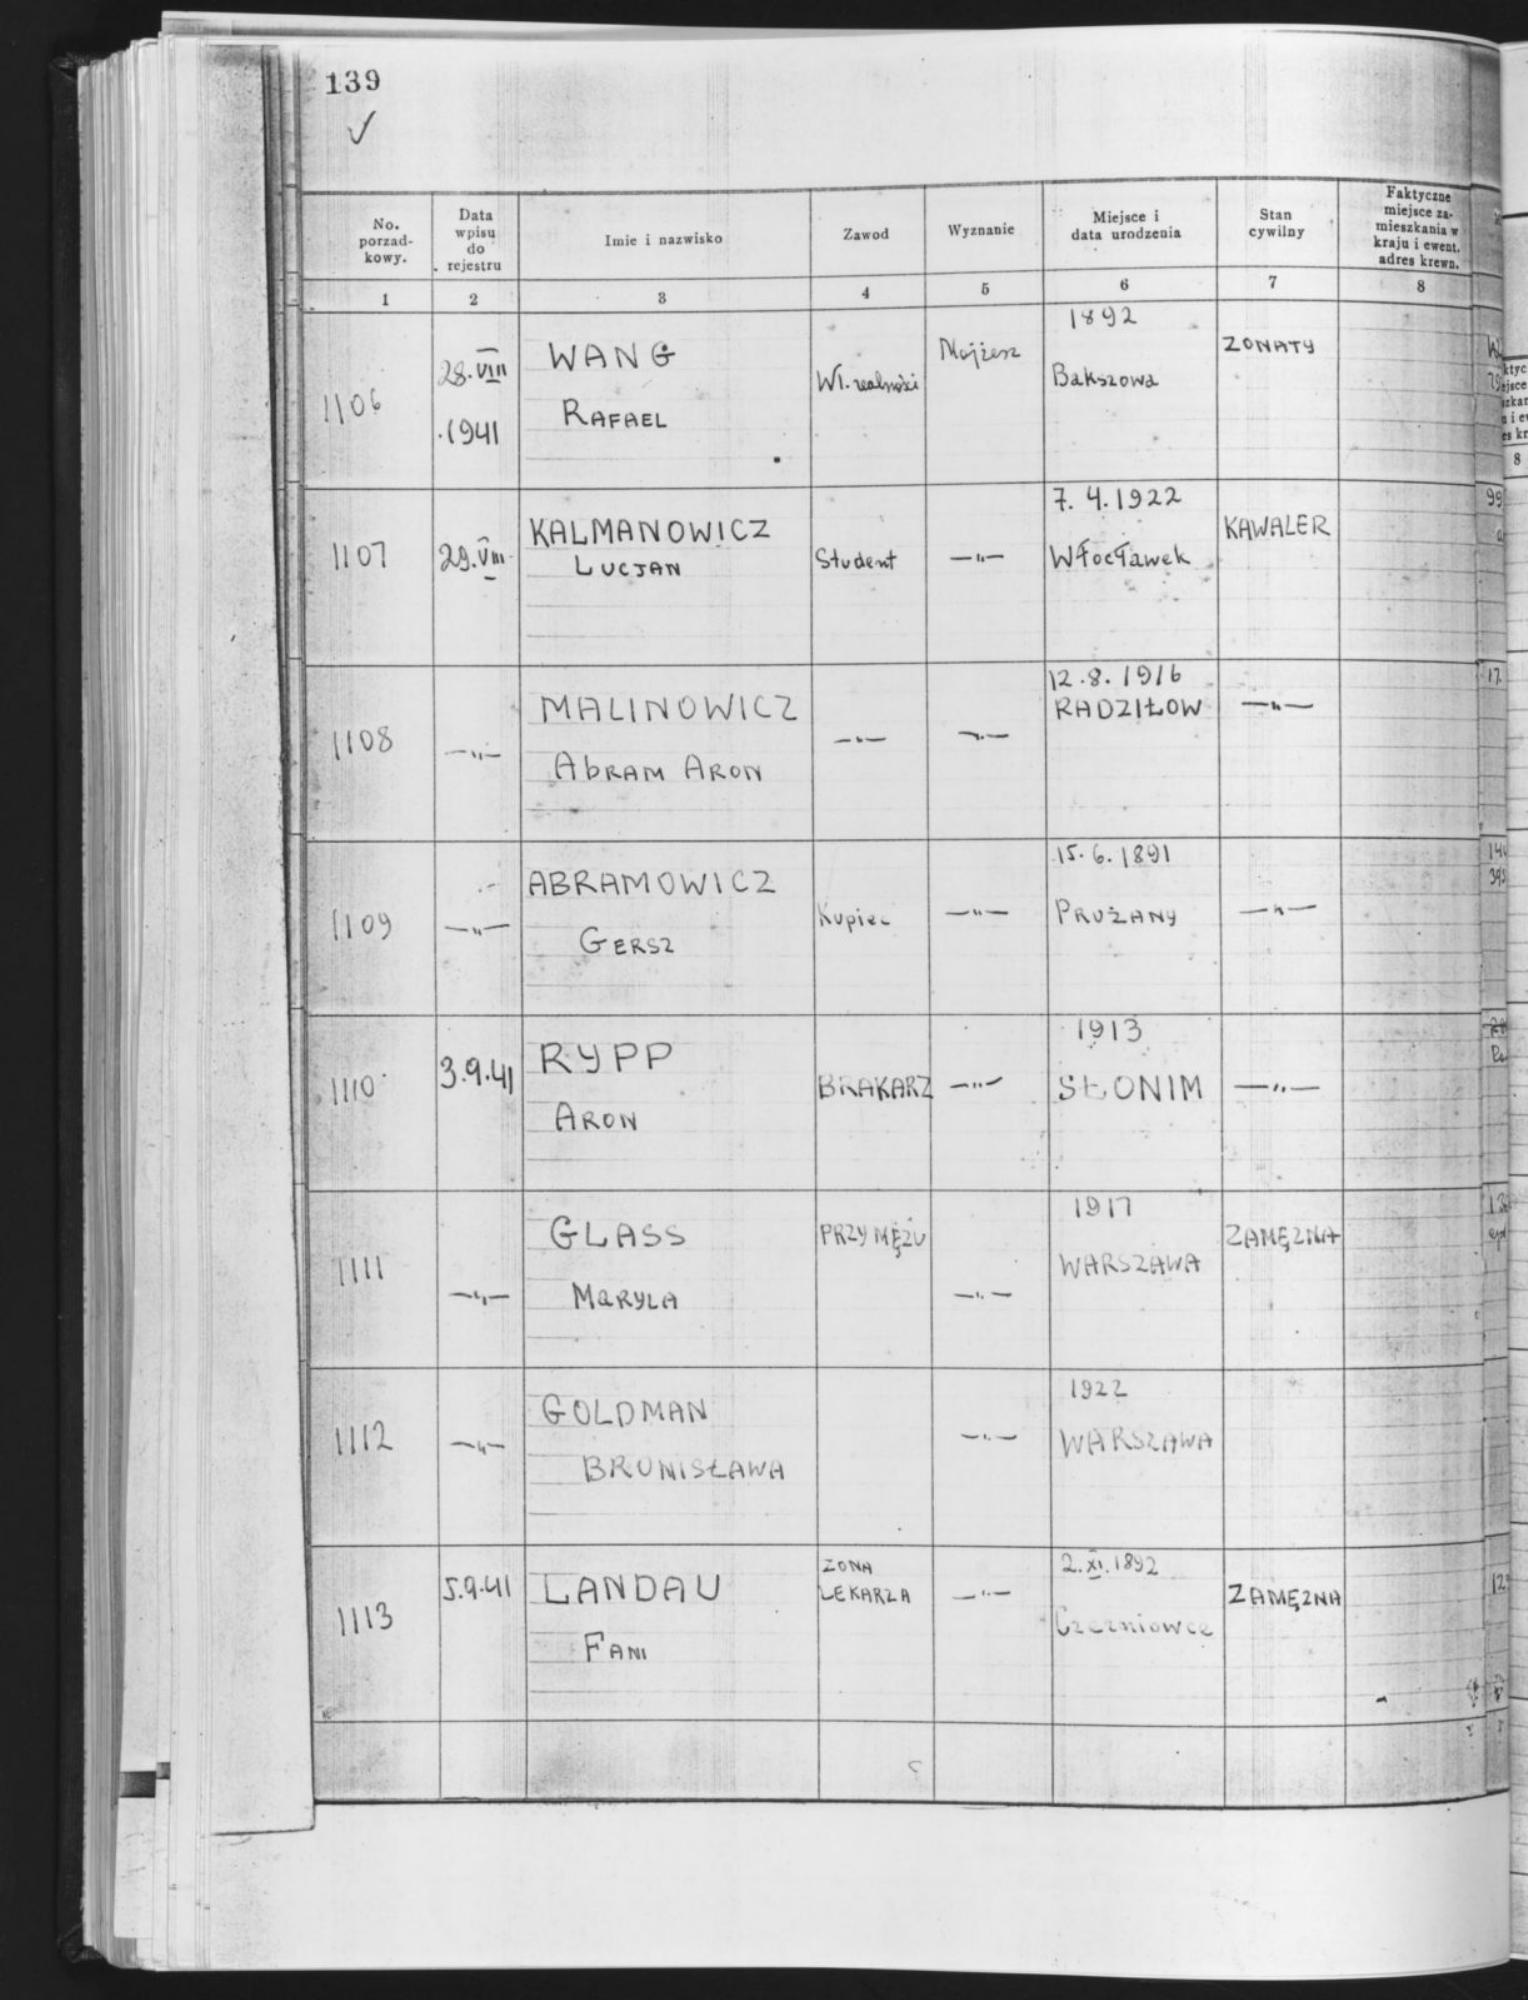 139
✓
No. porzad- kowy.
Data wpisu do rejestru
Imie i nazwisko
Zawod
Wyznanie
Miejsce i data urodzenia
Stan cywilny
Faktyczne miejsce za- mieszkania w kraju i ewent. adres krewn.
1 2 3 4 5 6 7 8
1106
28.VIII
.1941
WANG
RAFAEL
Wł. realności
Mojżesz
1892
Bakszowa
ZONATY
1107
29.VIII
KALMANOWICZ
LUCJAN
Student
—"—
7. 4. 1922
Włocławek
KAWALER
1108
—"—
MALINOWICZ
AbRAM ARON
—"—
—"—
12.8. 1916
RADZIŁOW
—"—
1109
—"—
ABRAMOWICZ
GERSZ
Kupiec
—"—
15. 6. 1891
PRUŻANY
—"—
1110
3.9.41
RYPP
ARON
BRAKARZ
—"—
1913
SŁONIM
—"—
1111
—"—
GLASS
MaRYLA
PRZY MĘŻU
—"—
1917
WARSZAWA
ZAMĘZNA
1112
—"—
GOLDMAN
BRONISŁAWA
—"—
1922
WARSZAWA
1113
5.9.41
LANDAU
FANI
ZONA
LEKARZA
—"—
2.XI.1892
Czerniowce
ZAMĘZNA